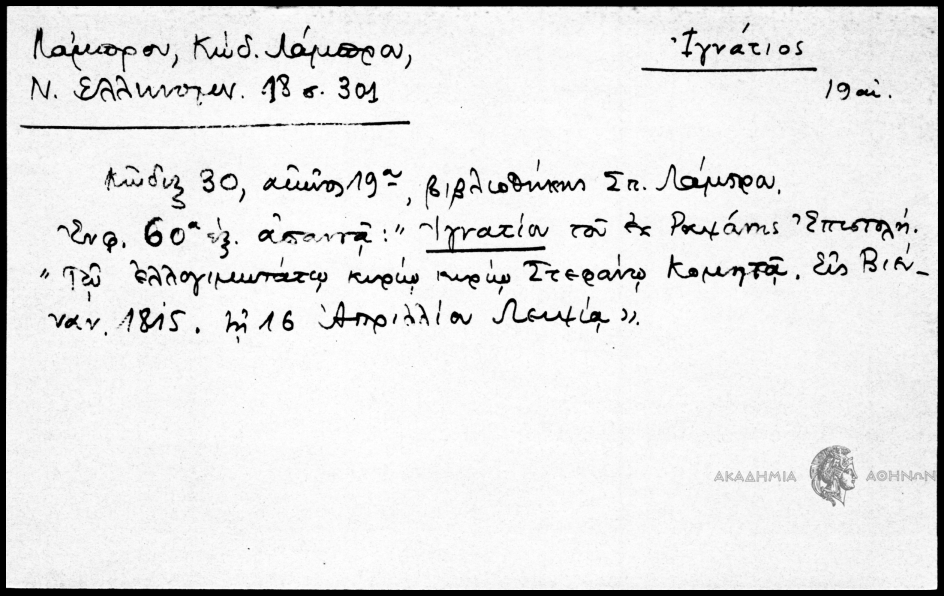 Λάμπρου, Κώδ. Λάμπρου,
Ν. Ελληνομν. 18 σ. 301
Ἰγνάτιος
19 αἰ.
Κῶδιξ 30, αἰῶνος 19ου, βιβλιοθήκης Σπ. Λάμπρου.
Ἐν φ. 60α ἑξ. ἀπαντᾷ: " Ἰγνατίου τοῦ ἐκ Ἐπιστολή.
" Τῷ ἐλλογιμωτάτῳ κυρίῳ κυρίῳ Στεφάνῳ Κομητᾷ. Εἰς Βιέν-
ναν. 1815. τῇ 16 Ἀπριλλίου ».
ΑΚΑΔΗΜΙΑ ΑΘΗΝΩΝ